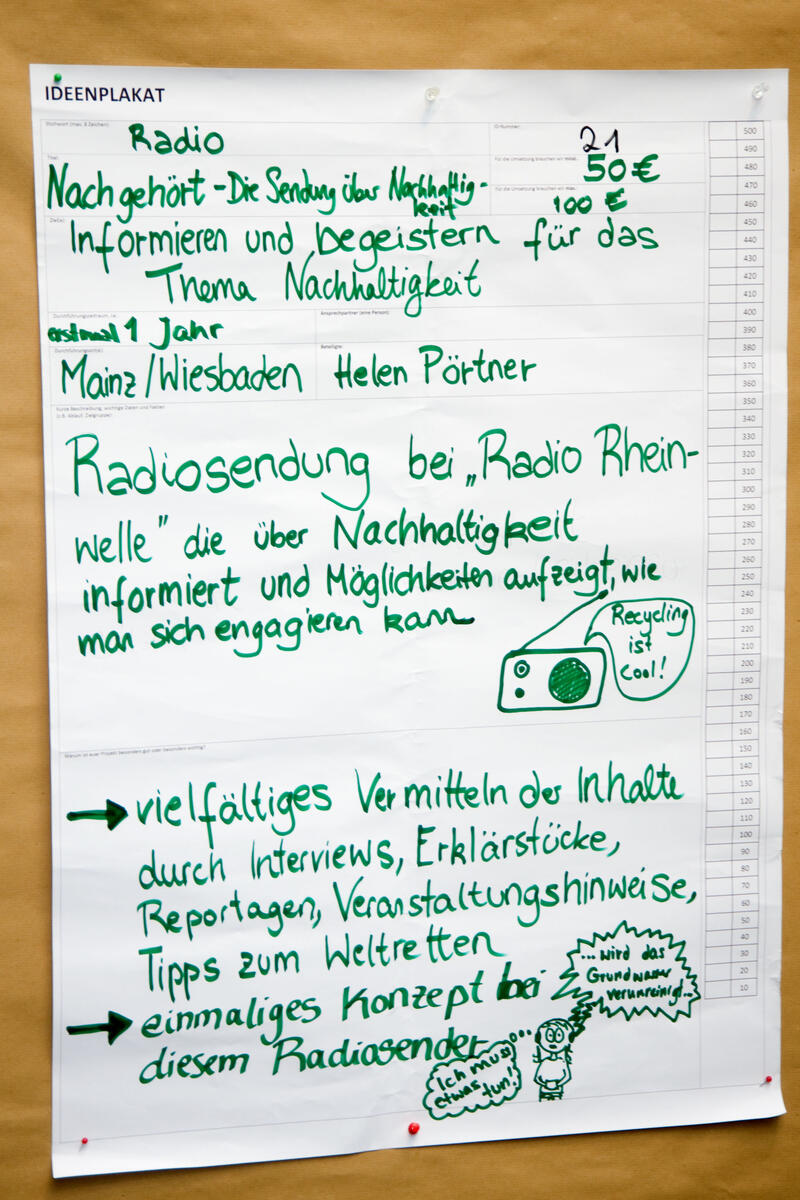 IDEENPLAKAT
Stichwort (max. 8 Zeichen):
Radio
ID-Nummer:
21
Titel:
Nachgehört - Die Sendung über Nachhaltig-
keit
Für die Umsetzung brauchen wir mind.:
50 €
Für die Umsetzung brauchen wir max.:
100 €
Ziel(e):
Informieren und begeistern für das
Thema Nachhaltigkeit
Durchführungszeitraum, ca.:
erstmal 1 Jahr
Ansprechpartner (eine Person):
Durchführungsort(e):
Mainz/Wiesbaden
Beteiligte:
Helen Pörtner
Kurze Beschreibung, wichtige Daten und Fakten
(z.B. Ablauf, Zielgruppe):
Radiosendung bei „Radio Rhein-
welle" die über Nachhaltigkeit
informiert und Möglichkeiten aufzeigt, wie
man sich engagieren kann
Recycling
ist
cool!
Warum ist euer Projekt besonders gut oder besonders wichtig?
→ vielfältiges Vermitteln der Inhalte
durch Interviews, Erklärstücke,
Reportagen, Veranstaltungshinweise,
Tipps zum Weltretten
→ einmaliges Konzept bei
diesem Radiosender
... wird das
Grundwasser
verunreinigt...
Ich muss
etwas
tun!
500
490
480
470
460
450
440
430
420
410
400
390
380
370
360
350
340
330
320
310
300
290
280
270
260
250
240
230
220
210
200
190
180
170
160
150
140
130
120
110
100
90
80
70
60
50
40
30
20
10